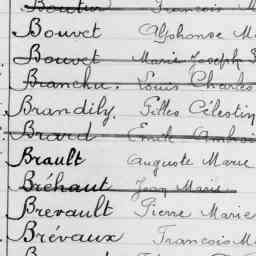 Boutier François M
Bouvet Alphonse Ma
Bouvet Marie Joseph
Branchu. Louis Charles
Brandily. Gilles Célestin
Brard Emile Ambroi
Brault Auguste Marie
Bréhaut Jean Marie
Brevault Pierre Marie
Brévaux François M